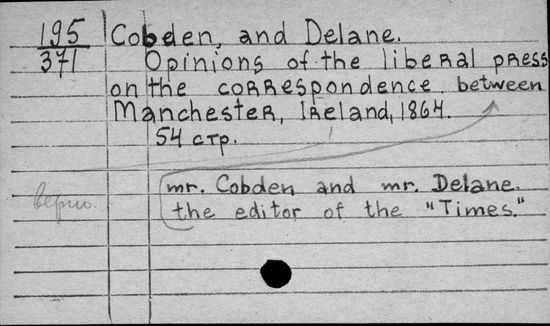 195
371
Cobden, and Delane.
Opinions of the liberal press
on the correspondence between
Manchester, Ireland, 1864.
54 стр.
mr. Cobden and mr. Delane.
the editor of the "Times."
верно.